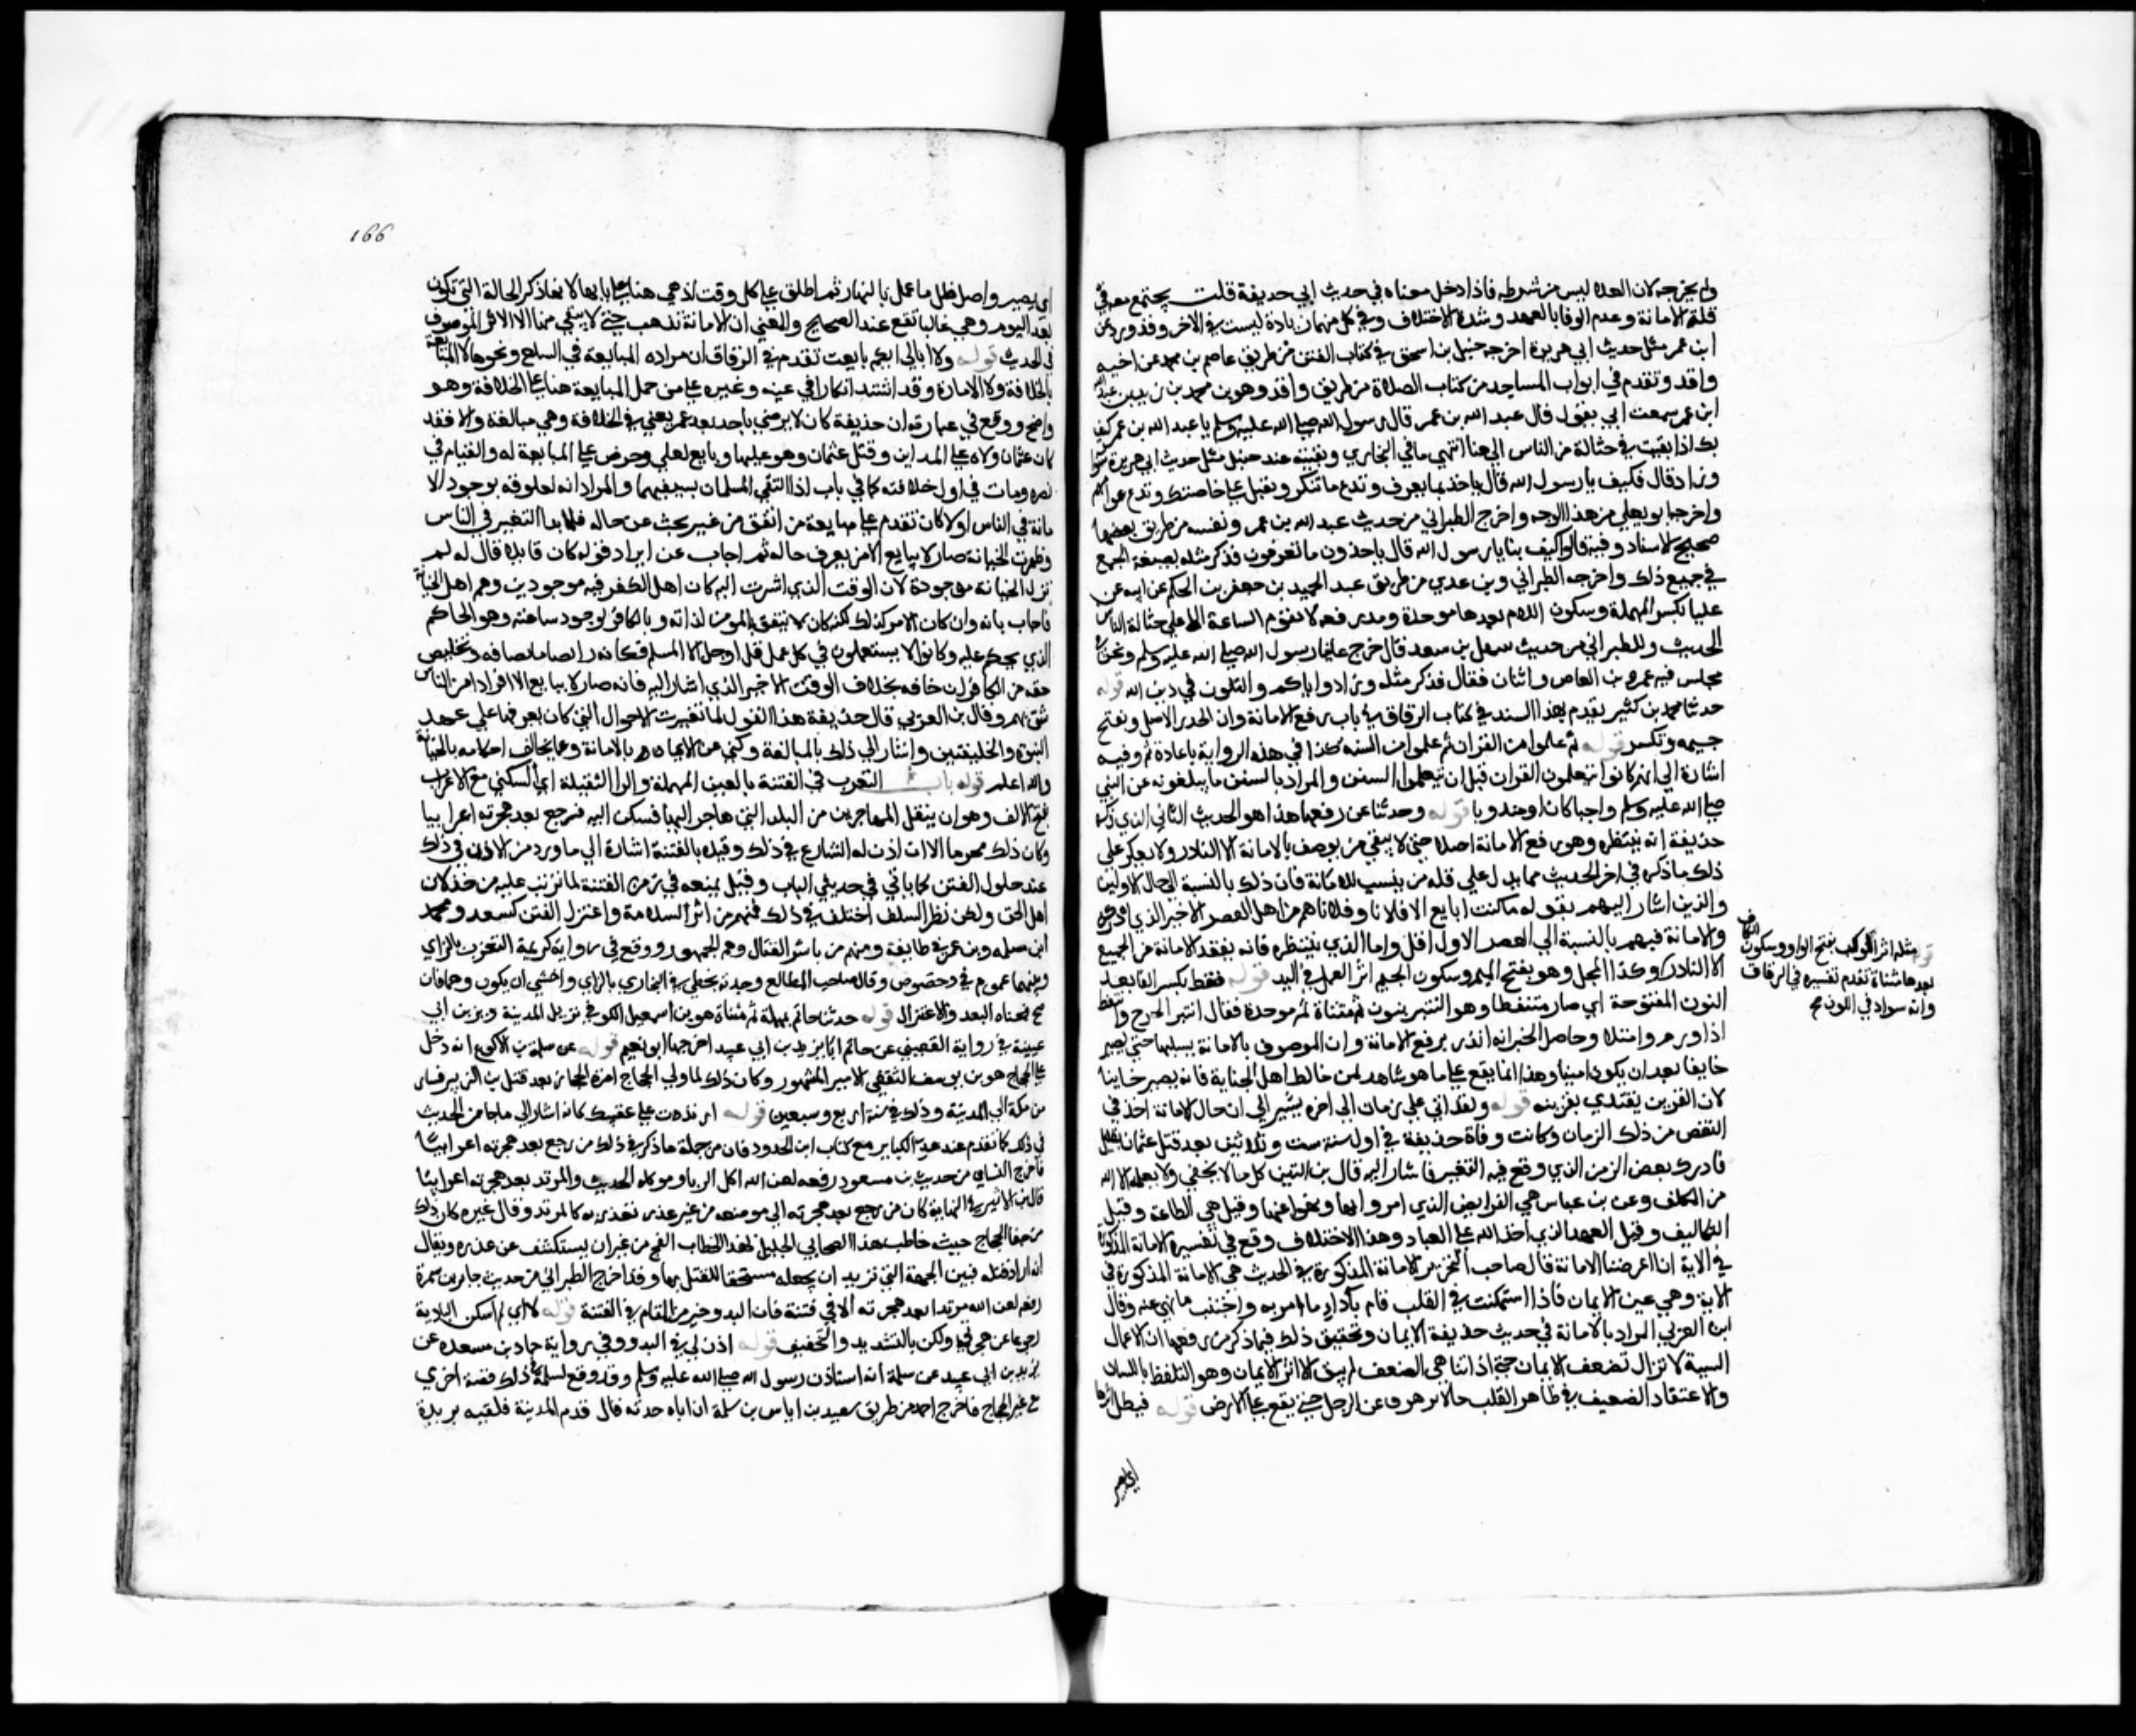 ولم يخرجه لان العلاء ليس من شرطه فادخل معناه في حديث ابي حذيفة قلت يجتمع معه في
قلة الامانة وعدم الوفا بالعهد وشدة الاختلاف وفي كل منهما زيادة ليست في الاخر وقد ورد عن
ابن عمر مثل حديث ابي هريرة اخرجه حنبل بن اسحق في كتاب الفتن من طريق عاصم بن محمد عن اخيه
واقد وتقدم في ابواب المساجد من كتاب الصلاة من طريق واقد وهو بن محمد بن زيد بن عبد الله
ابن عمر سمعت ابي يقول قال عبد الله بن عمر قال رسول الله صلى الله عليه وسلم يا عبد الله بن عمر كيف
بك اذا بقيت في حثالة من الناس الى هنا انتهى ما في البخاري وبقيته عند حنبل مثل حديث ابي هريرة سوا
وزاد قال فكيف يا رسول الله قال ياخذ بما يعرف وتدع ما تنكر وتقبل على خاصتك وتدع عوامهم
واخرجه ابو يعلى من هذا الوجه واخرج الطبراني من حديث عبد الله بن عمر ونفسه من طريق بعضها
صحيح الاسناد وفيه قالوا كيف بنا يا رسول الله قال ياخذون ما تعرفون فذكر مثله بصيغة الجمع
في جميع ذلك واخرجه الطبراني وبن عدي من طريق عبد الحميد بن جعفر بن الحكم عن ابيه عن
علبا بكسر المهملة وسكون اللام بعدها موحدة ومد رفعه لا تقوم الساعة الا على حثالة الناس
الحديث وللطبراني من حديث سهل بن سعد قال خرج علينا رسول الله صلى الله عليه وسلم ونحن في
مجلس فيه عمرو بن العاص واثنان فقال فذكر مثله وزاد واياكم والتلون في دين الله قوله
حدثنا محمد بن كثير تقدم بهذا السند في كتاب الرقاق في باب رفع الامانة وان الجذر الاصل وتفتح
جيمه وتكسر قوله ثم علموا من القران ثم علموا من السنه كذا في هذه الرواية باعادة ثم وفيه
اشارة الى انهم كانوا يتعلمون القران قبل ان يتعلموا السنن والمراد بالسنن ما يبلغونه عن النبي
صلى الله عليه وسلم واجبا كان او مندوبا قوله وحدثنا عن رفعها هذا هو الحديث الثاني الذي ذكر
حذيفة انه ينتظره وهو رفع الامانة اصلا حتى لا يبقى من يوصف بالامانة الا النادر ولا يعكر على
ذلك ما ذكره في اخر الحديث مما يدل على قلة من ينسب للامانة فان ذلك بالنسبة الى حال الاولين
والذين اشار اليهم بقوله ما كنت ابايع الا فلانا وفلانا هم من اهل العصر الاخير الذي ادركه
والامانة فيهم بالنسبة الى العصر الاول اقل واما الذي ينتظره فانه يفقد الامانة من الجميع
الا النادر وكذا المجل وهو بفتح الميم وسكون الجيم اثر العمل في اليد قوله فنفط بكسر الفا بعد
النون المفتوحة اي صار متنفطا وهو المنتبر بنون ثم مثناة ثم موحدة فقال انتبر الجرح وانتفط
اذا ورم وامتلا وحاصل الخبر انه انذر برفع الامانة وان الموصوف بالامانة يسلبها حتى يصير
خاينا بعد ان يكون امينا وهذا انما يقع على ما هو شاهد لمن خالط اهل الخيانة فانه يصير خاينا
لان القرين يقتدي بقرينه قوله ولقد اتى علي زمان الى اخره يشير الى ان حال الامانة اخذ في
النقص من ذلك الزمان وكانت وفاة حذيفة في اول سنة ست وثلاثين بعد قتل عثمان بقليل
فادرك بعض الزمن الذي وقع فيه التغيير فاشار اليه قال بن التين كل ما لا يخفى ولا يعلمه الا الله
من المكلف وعن بن عباس هي الفرايض الذي امروا بها ونهوا عنها وقيل هي الطاعة وقيل
التكاليف وقيل العهد الذي اخذ الله على العباد وهذا الاختلاف وقع في تفسير الامانة المذكورة
في الاية انا عرضنا الامانة قال صاحب التحرير الامانة المذكورة في الحديث هي الامانة المذكورة في
الاية وهي عين الايمان فاذا استمكنت في القلب قام بآداء ما امر به واجتنب ما نهي عنه وقال
ابن العربي المراد بالامانة في حديث حذيفة الايمان وتحقيق ذلك فيما ذكر من رفعها ان الاعمال
السيية لا تزال تضعف الايمان حتى اذا تناهى الضعف لم يبق الا اثر الايمان وهو التلفظ باللسان
والاعتقاد الضعيف في ظاهر القلب حالا يزهر وعن الرجل حتى يقع على الارض قوله فيظل اثرها
قوله مثل اثر الوكت بفتح الواو وسكون الكاف
بعدها مثناة تقدم تفسيره في الرقاق
وانه سواد في اللون صح
اي يصير
166
اي يصير واصل ظل ما عمل بالنهار ثم اطلق على كل وقت اذ هي هنا على بابها لانه ذكر الحالة التي تكون
بعد اليوم وهي غالبا تقع عند الصحيح والمعنى ان الامانة تذهب حتى لا يبقى منها الا الاثر الموصوف
في الحديث قوله ولا ابالي ايكم بايعت تقدم في الرقاق ان مراده المبايعة في السلع ونحوها لا المبايعة
بالخلافة ولا الامارة وقد اشتد انكار ابي عبيد وغيره على من حمل المبايعة هنا على الخلافة وهو
واضح ووقع في عبارته ان حذيفة كان لا يرضى باحد بعد عمر يعني في الخلافة وهي مبالغة والا فقد
كان عثمان ولاه على المداين وقتل عثمان وهو عليها وبايع لعلي وحرض على المبايعة له والقيام في
نصره ومات في اول خلافته كما في باب اذا التقى المسلمان بسيفيهما والمراد انه لوثوقه بوجود الا
مانة في الناس اولا كان تقدم على مبايعة من اتفق من غير بحث عن حاله فلما بدا التغير في الناس
وظهرت الخيانة صار لا يبايع الا من يعرف حاله ثم اجاب عن ايراد قوله كان قايلا قال له لم
تزل الخيانة موجودة لان الوقت الذي اشرت اليه كان اهل الكفر فيه موجودين وهم اهل الخيانة
فاجاب بانه وان كان الامر كذلك لكنه كان لا يثق بالمومن لذاته وبالكافر لوجود ساعيه وهو الحاكم
الذي يحكم عليه وكانوا لا يستعملون في كل عمل قل او جل الا المسلم فكان واثقا بانصافه وتخليص
حقه من الكافر ان خانه بخلاف الوقت الاخير الذي اشار اليه فانه صار لا يبايع الا افرادا من الناس
يثق بهم وقال بن العربي قال حذيفة هذا القول لما تغيرت الاحوال التي كان يعرفها على عهد
النبوة والخليفتين واشار الى ذلك بالمبالغة وكنى عن الايمان بالامانة وعما يخالف احكامه بالخيانة
والله اعلم قوله باب التعرب في الفتنة بالعين المهملة والرا الثقيلة اي السكنى مع الاعراب
بفتح الالف وهو ان ينتقل المهاجر من البلد التي هاجر اليها فيسكن البدو فيرجع بعد هجرته اعرابيا
وكان ذلك محرما الا ان اذن له الشارع في ذلك وقيده بالفتنة اشارة الى ما ورد من الاذن في ذلك
عند حلول الفتن كما ياتي في حديثي الباب وقيل بمنعه في زمن الفتنة لما يترتب عليه من خذلان
اهل الحق ولكن نظر السلف اختلف في ذلك فمنهم من اثر السلامة واعتزل الفتن كسعد ومحمد
ابن مسلمه وبن عمر في طايفة ومنهم من باشر القتال وهم الجمهور ووقع في رواية كريمة التعزب بالزاي
وبينهما عموم وخصوص وقال صاحب المطالع وجدته بخطي في البخاري بالزاي واخشى ان يكون وهما فان
صح فمعناه البعد والاعتزال قوله حدثنا حاتم بمهملة ثم مثناة هو بن اسمعيل الكوفي نزيل المدينة ويزيد بن ابي
عبيد في رواية القعنبي عن حاتم انا يزيد بن ابي عبيد اخرجها ابو نعيم قوله عن سلمة بن الاكوع انه دخل
على الحجاج هو بن يوسف الثقفي الامير المشهور وكان ذلك لما ولي الحجاج امرة الحجاز بعد قتل بن الزبير فسار
من مكة الى المدينة وذلك في سنة اربع وسبعين قوله ارتددت على عقبيك كانه اشار الى ما جا من الحديث
في ذلك كما تقدم عند عد الكباير مع كتاب الحدود فان من جملة ما ذكر في ذلك من رجع بعد هجرته اعرابيا
فاخرج النساي من حديث بن مسعود رفعه لعن الله اكل الربا وموكله الحديث والمرتد بعد هجرته اعرابيا
قال بن الاثير في النهاية كان من رجع بعد هجرته الى موضعه من غير عذر يعدونه كالمرتد وقال غيره كان ذلك
من جفا الحجاج حيث خاطب هذا الصحابي الجليل بهذا الخطاب القبيح من غير ان يستكشف عن عذره ويقال
انه اراد قتله فبين الجهة التي يريد ان يجعله مستحقا للقتل بها وقد اخرج الطبراني من حديث جابر بن سمرة
رفعه لعن الله من بدا بعد هجرته الا في فتنة فان البدو خير من المقام في الفتنة قوله لا اي لم اسكن البادية
رجوعا عن هجرتي ولكن بالتشديد والتخفيف قوله اذن لي في البدو وفي رواية حماد بن مسعده عن
يزيد بن ابي عبيد عن سلمة انه استاذن رسول الله صلى الله عليه وسلم وقد وقع لسلمة في ذلك قصة اخرى
مع غير الحجاج فاخرج احمد من طريق سعيد بن اياس بن سلمة ان اباه حدثه قال قدم المدينة فلقيه بريدة